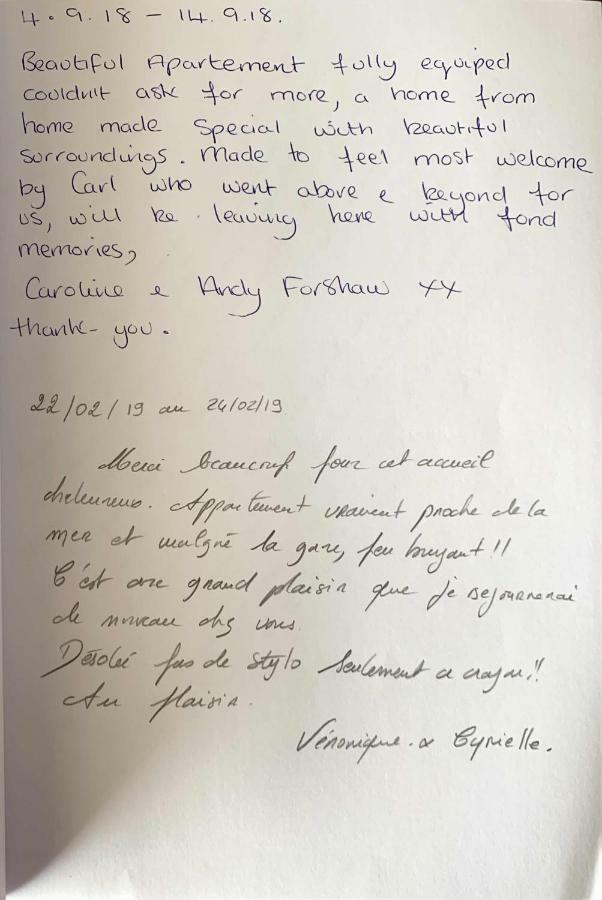 4.9.18 - 14.9.18.
Beautiful Apartement fully equiped
couldnt ask for more, a home from
home made special with beautiful
surroundings. Made to feel most welcome
by Carl who went above & beyond for
us, will be leaving here with fond
memories,
Caroline & Andy Forshaw xx
thank-you.
22/02/19 au 24/02/19
Merci beaucoup pour cet accueil
cheleureux. Appartement vraiment proche de la
mer et malgré la gare, peu bruyant!!
C'est avec grand plaisir que je sejournerai
de nouveau chez vous.
Désolé pas de stylo seulement a crayon!!
Au plaisir.
Véronique. & Cyrielle.